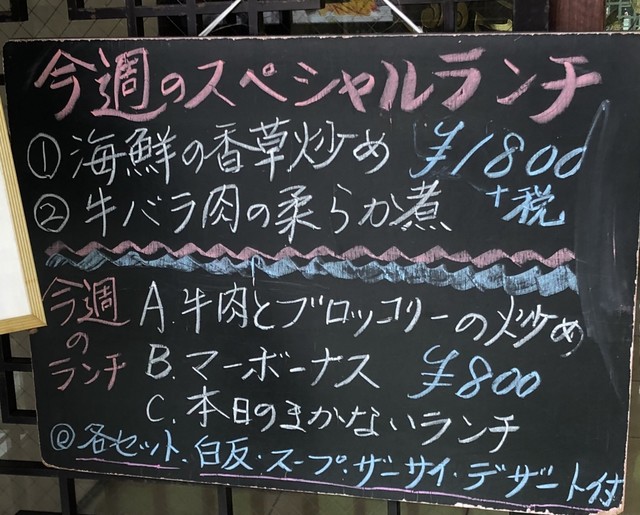 今週のスペシャルランチ
① 海鮮の香草炒め ¥1800
② 牛バラ肉の柔らか煮 +税
今週のランチ
A. 牛肉とブロッコリーの炒め
B. マーボーナス ¥800
C. 本日のまかないランチ
◎ 各セット. 白反・スープ・ザーサイ・デザート付